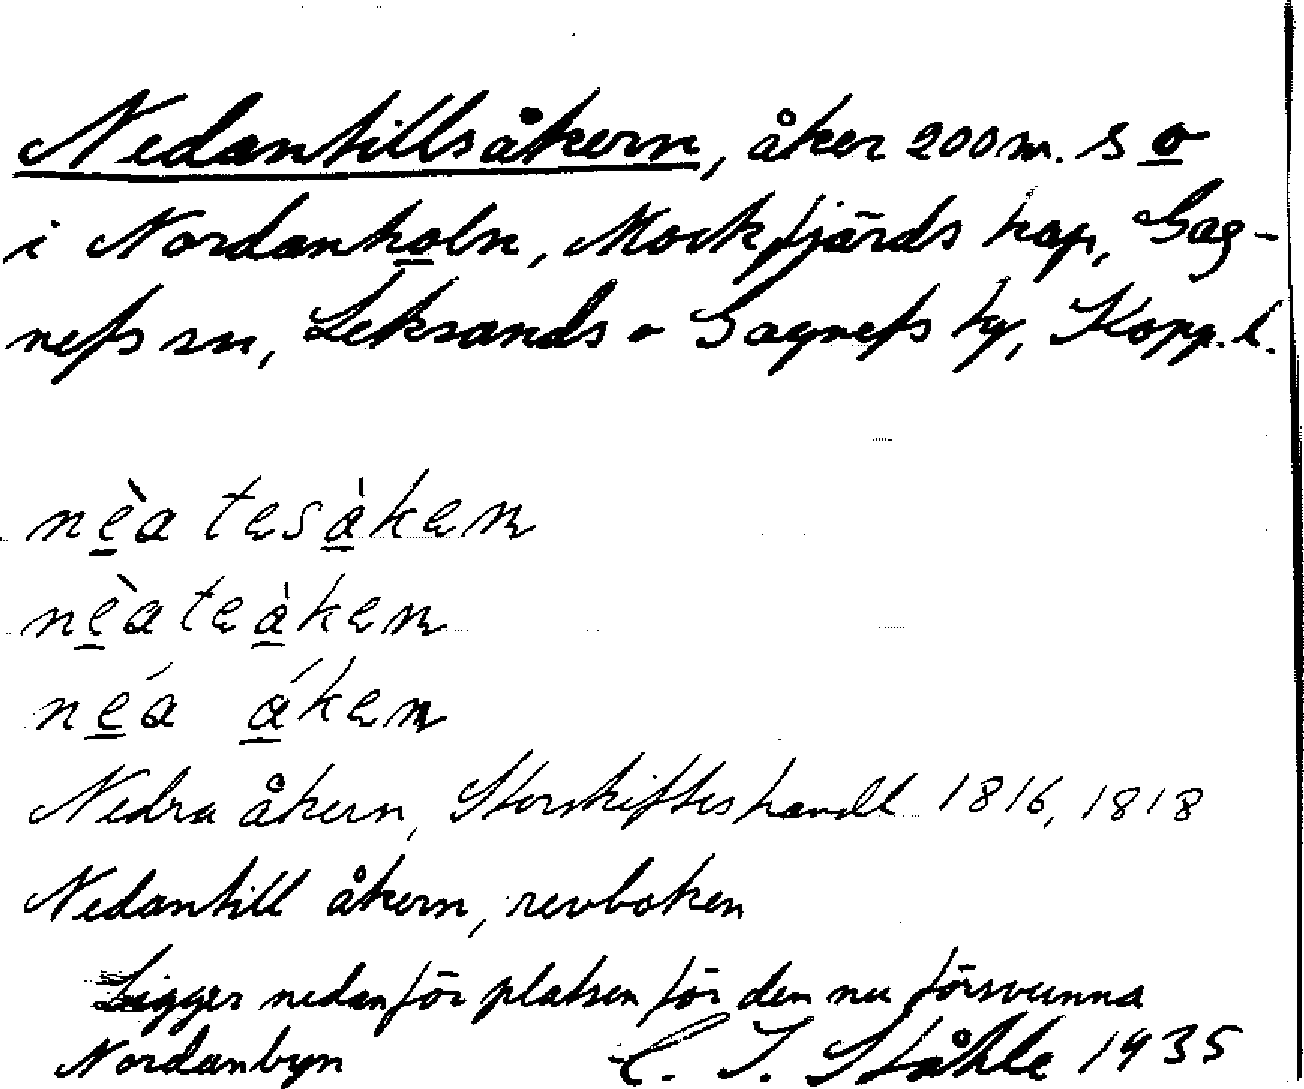 Nedantillsåkern, åker 200 m. S o
i Nordanholn, Mockfjärds kap, Gag-
nefs sn, Leksands o Gagnefs tg, Kopp. l.
nèa tesàken
nèateàken
néa áken
Nedra åkern, Storskifteshandl 1816, 1818
Nedantill åkern, revboken
Ligger nedanför platsen för den nu försvunna
Nordanbyn
C. I. Ståhle 1935